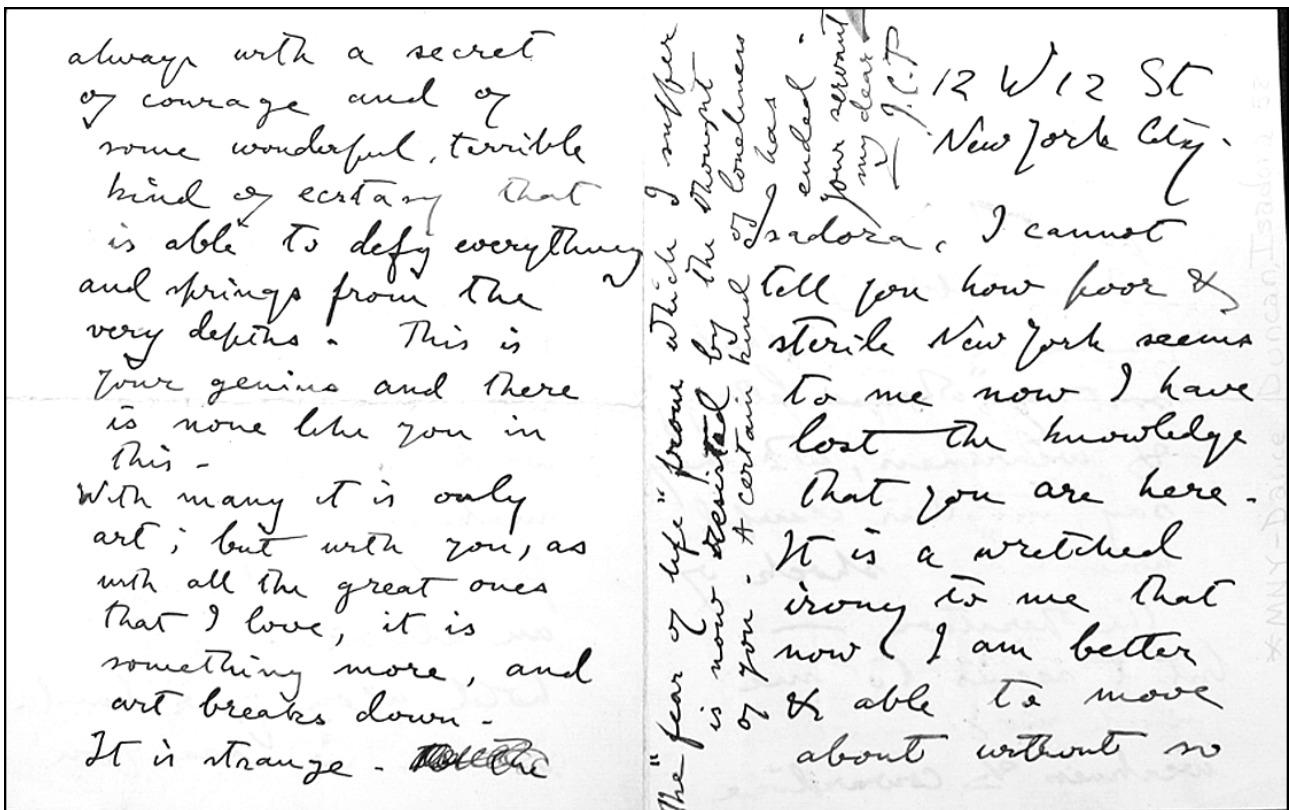 always with a secret
of courage and of
some wonderful, terrible
kind of ecstasy that
is able to defy everything
and springs from the
very depths. This is
your genius and there
is none like you in
this -
With many it is only
art; but with you, as
with all the great ones
that I love, it is
something more, and
art breaks down.
It is strange.
The "fear of life" from which I suffer
is now resisted by the thought
of you. A certain kind of loneliness
has
ended"
your servant
my dear
— J.C.P
12 W 12 St
New York City.
Isadora, I cannot
tell you how poor &
sterile New York seems
to me now I have
lost the knowledge
that you are here.
It is a wretched
irony to me that
now I am better
& able to move
about without so
*MNY-Dance Duncan, Isadora